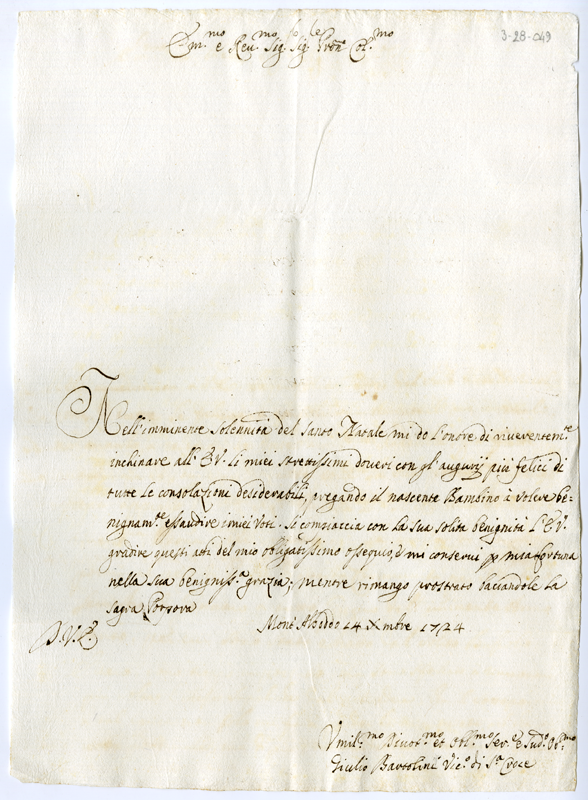 3-28-049
E.mo e Reu.mo Sig.r Sig.r Pron Col.mo
Nell'imminente Solennità del Santo Natale mi do l'onore di riuerentem.te
inchinare all'E.V. li miei strettissimi doueri con gl'augurij più felici di
tutte le consolazioni desiderabili, pregando il nascente Bambino à volere be-
nignam.te essaudire i miei voti. Si compiaccia con la sua solita benignità l'E.V.
gradire questi atti del mio obligatissimo ossequio, e mi conserui p mia fortuna
nella sua benigniss.a grazia; mentre rimango prostrato baciandole la
sagra Porpora
14 Xmbre 1724
D.V.E.
Vmil.mo Diuot.mo et Obl.mo Ser.e e Sud.o
Giulio Bartolini Vic.o di S.a Croce